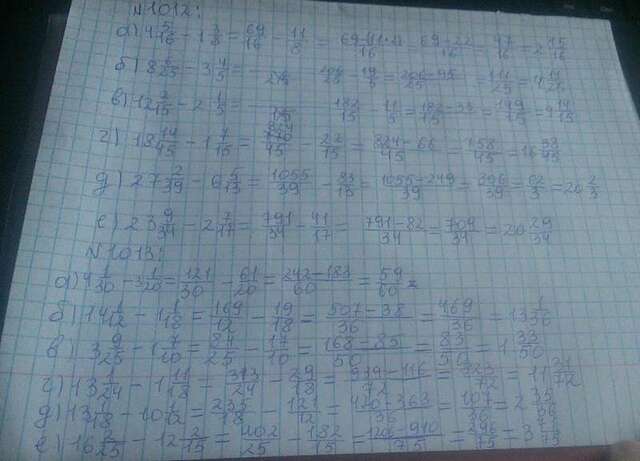 N1012:
а) 4 5/16 - 1 3/8 = 69/16 - 11/8 = 69-11·2/16 = 69-22/16 = 47/16 = 2 15/16
б) 8 6/25 - 3 4/5 = - 19/5 = 206-95/25 = 111/25 = 4 11/25
в) 12 2/15 - 2 1/5 = 182/15 - 11/5 = 182-33/15 = 149/15 = 9 14/15
г) 18 14/45 - 1 7/15 = 824/45 - 22/15 = 824-66/45 = 758/45 = 16 38/45
д) 27 2/39 - 6 5/13 = 1055/39 - 83/13 = 1055-249/39 = /39 = 62/3 = 20 2/3
е) 23 9/34 - 2 7/17 = 791/34 - 41/17 = 791-82/34 = 709/34 = 20 29/34
N1013:
а) 4 1/30 - 3 1/20 = 121/30 - 61/20 = 242-183/60 = 59/60
б) 14 1/12 - 1 1/18 = 169/12 - 19/18 = 507-38/36 = 469/36 = 13 1/36
в) 3 9/25 - 1 7/10 = 84/25 - 17/10 = 168-85/50 = 83/50 = 1 33/50
г) 13 1/24 - 1 11/18 = 313/24 - 29/18 = 939-116/72 = 823/72 = 11 31/72
д) 13 1/18 - 10 1/12 = 235/18 - 121/12 = 470-363/36 = 107/36 = 2 35/36
е) 16 2/25 - 12 2/15 = 402/25 - 182/15 = 1206-910/75 = 296/75 = 3 71/75